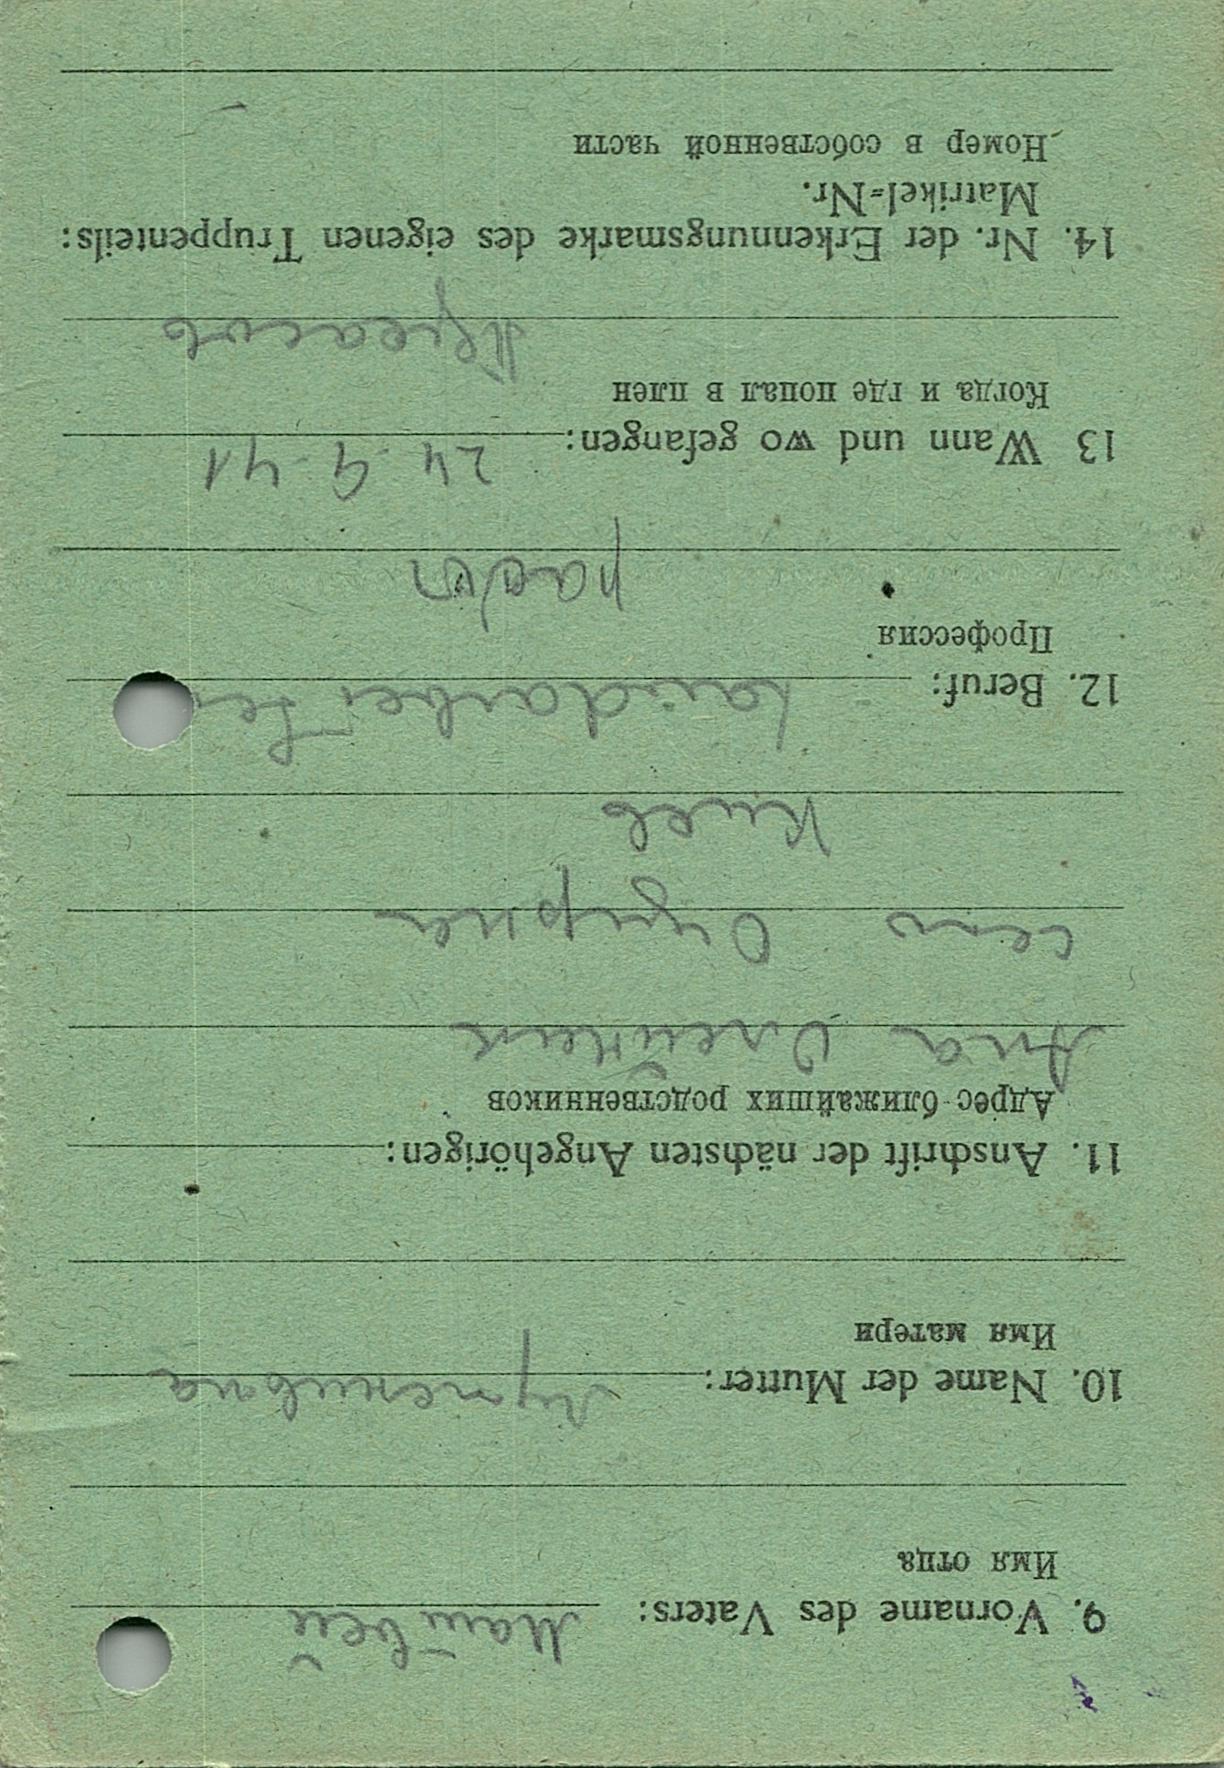 9. Vorname des Vaters: Матвей
Имя отца
10. Name der Mutter:
Имя матери
11. Anschrift der nächsten Angehörigen:
Адрес ближайших родственников
Олейник
село
Киев
12. Beruf: Landarbeiter
Профессия
рабоч
13 Wann und wo gefangen: 24 9 41
Когда и где попал в плен
14. Nr. der Erkennungsmarke des eigenen Truppenteils:
Matrikel=Nr.
Номер в собственной части